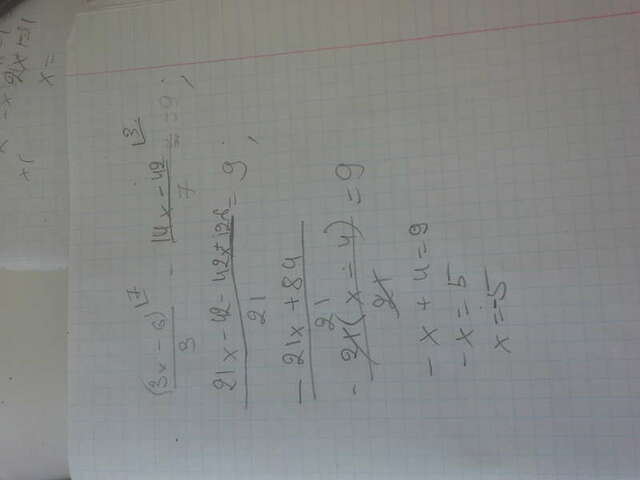 (3x-6)⌊7 / 3 - 14x-42⌊3 / 7 = 9;
21x-42-42x+126 / 21 = 9;
-21x+84 / 21
-21(x-4) / 21 = 9
-x+4=9
-x=5
x=-5
x=